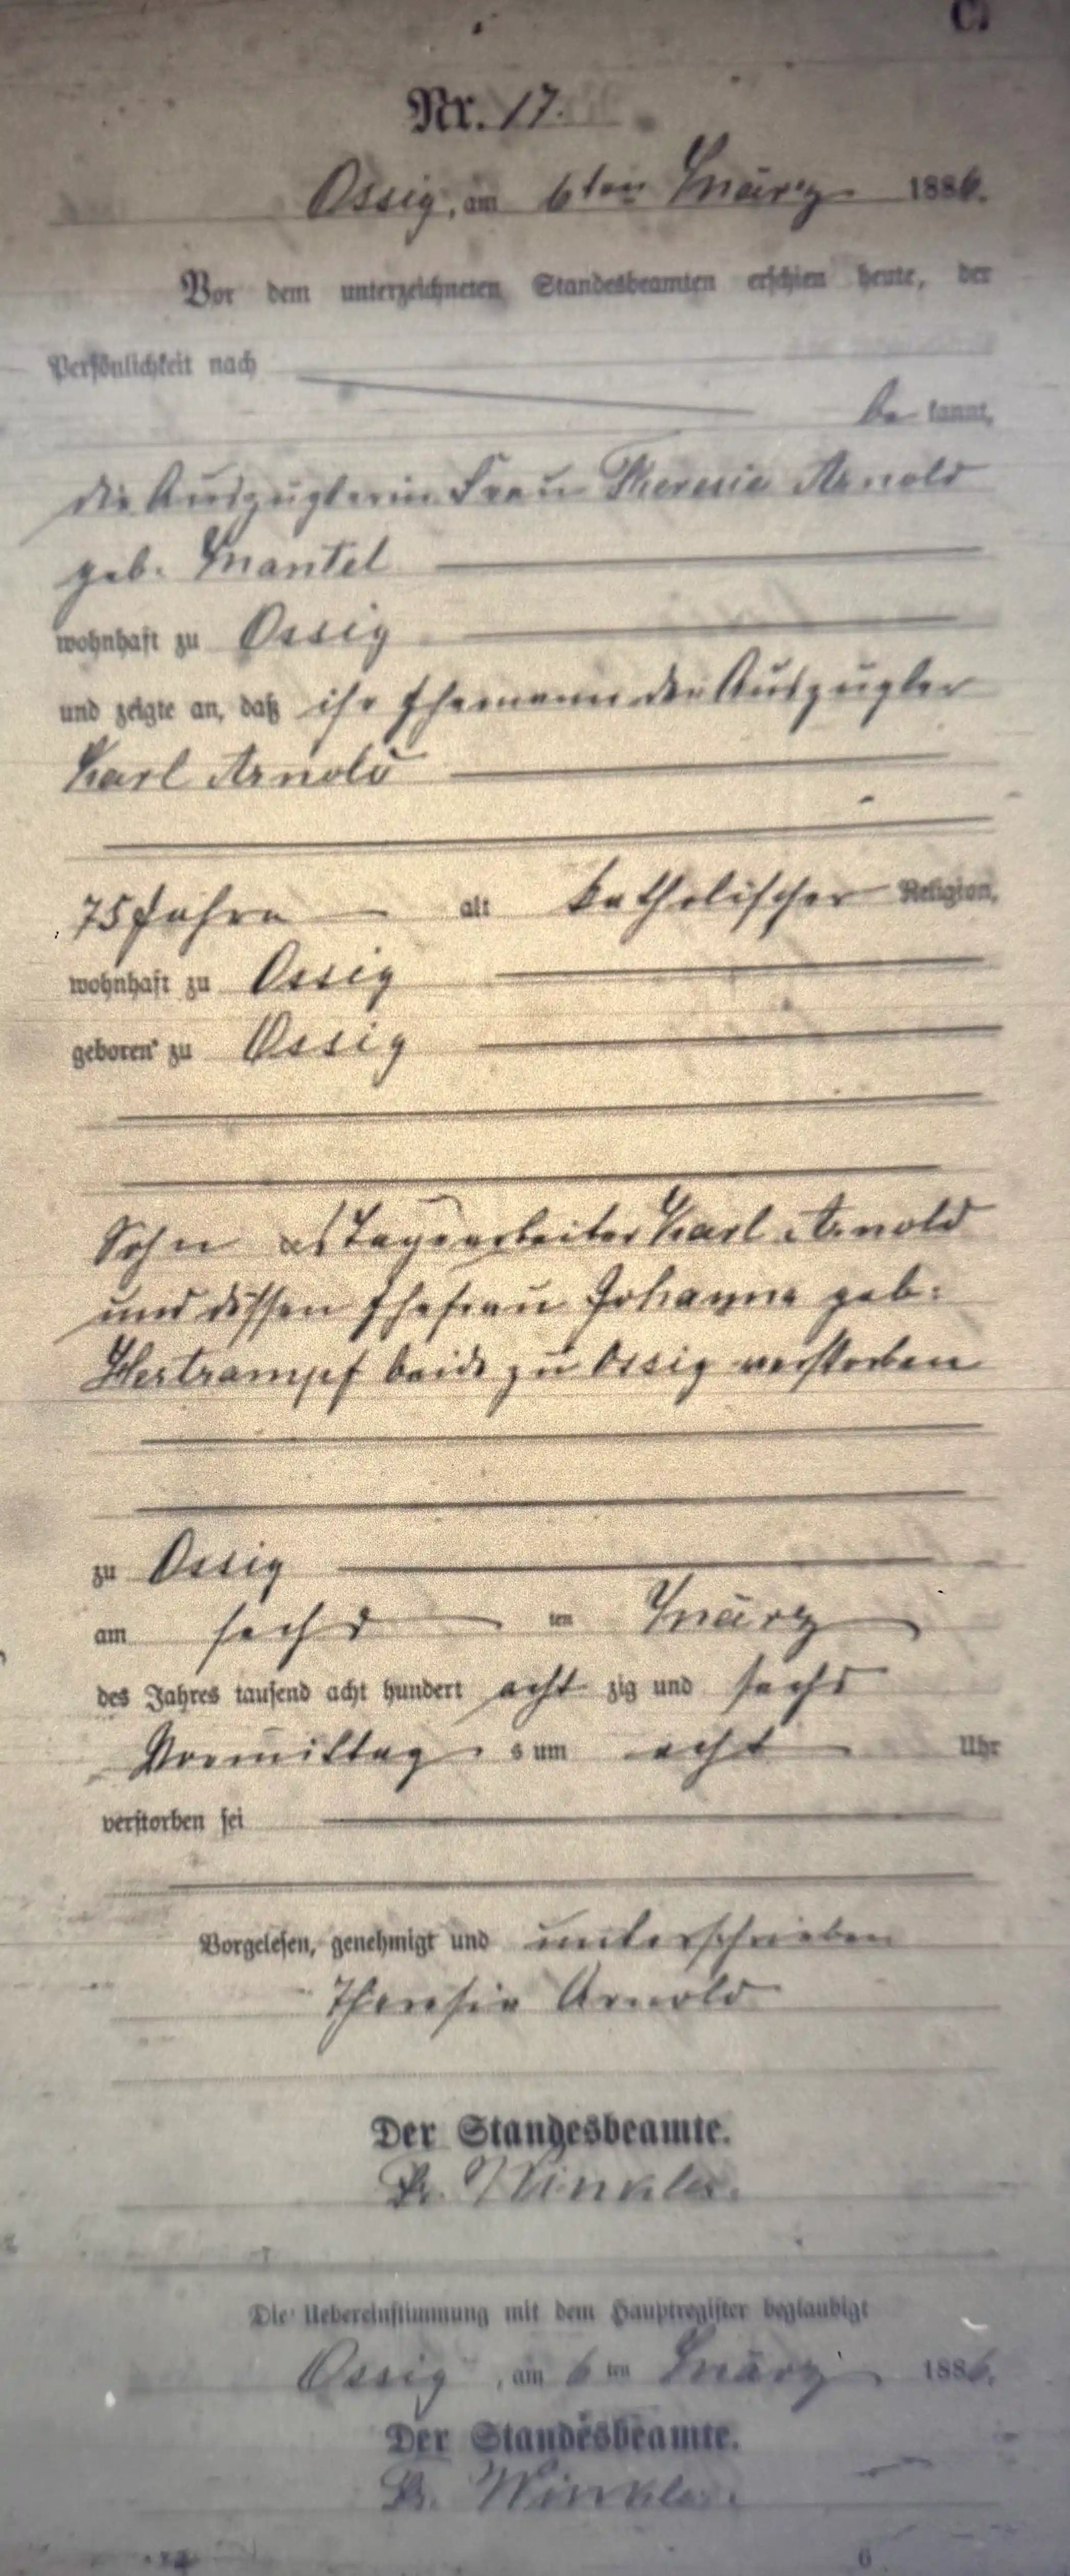 Nr. 17.
Ossig, am 6ten März 1886.
Vor dem unterzeichneten Standesbeamten erschien heute, der
Persönlichkeit nach
be kannt,
die Auszüglerin Frau Theresia Arnold
geb. Mantel
wohnhaft zu Ossig
und zeigte an, daß ihr Ehemann der Auszügler
Karl Arnold
75 Jahre alt katholischer Religion,
wohnhaft zu Ossig
geboren zu Ossig
Sohn des Tagearbeiter Karl Arnold
und dessen Ehefrau Johanna geb:
Hertrampf beide zu Ossig verstorben
zu Ossig
am sechs ten März
des Jahres tausend acht hundert acht zig und sechs
Vormittag s um acht Uhr
verstorben sei
Vorgelesen, genehmigt und unterschrieben
Theresia Arnold
Der Standesbeamte.
Winkler.
Die Uebereinstimmung mit dem Hauptregister beglaubigt
Ossig, am 6 ten März 1886.
Der Standesbeamte.
Winkler.
6